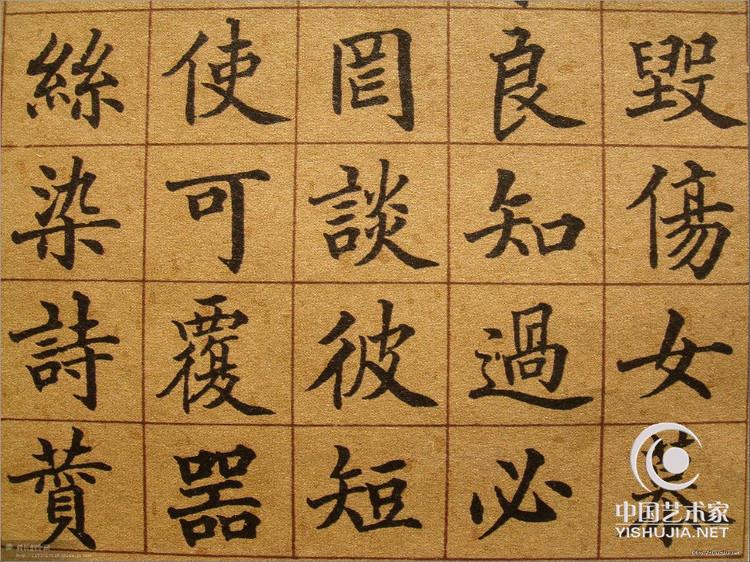 毀傷女慕
良知過必
罔談彼短
使可覆器
絲染詩贊
中国艺术家
YISHUJIA.NET